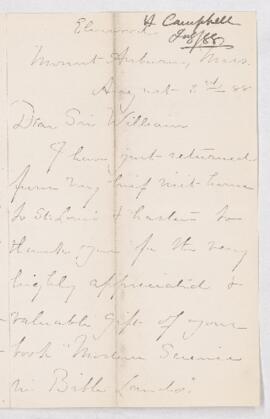 H Campbell
Elmwood
Mount Auburn, Mass.
August 2nd/88
Dear Sir William
I have just returned
from my brief visit home
to St. Louis & hasten to
thank you for the very
highly appreciated &
valuable gift of your
book "Modern Science
in Bible Lands".